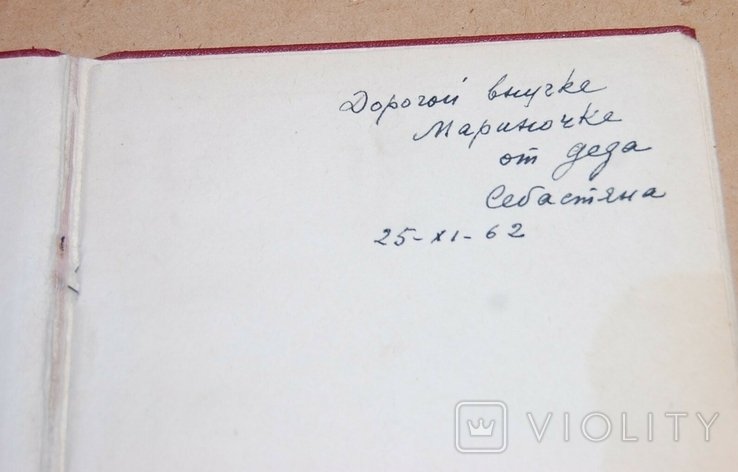 Дорогой внучке
Мариночке
от деда
Себастяна
25-XI-62
VIOLITY